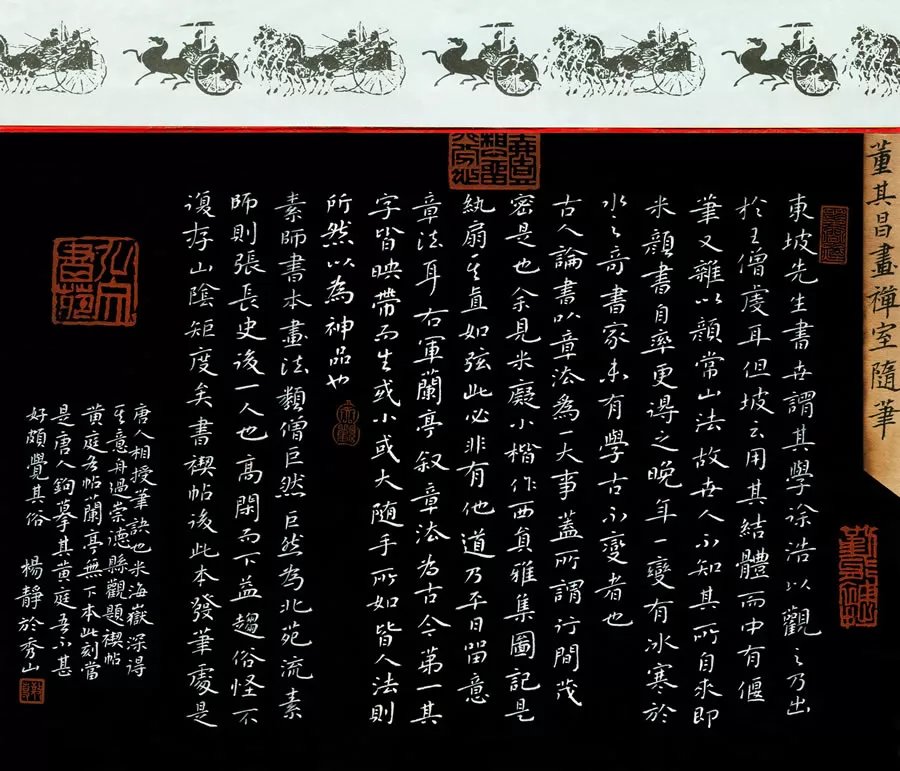 董其昌畫禪室隨筆
東坡先生書世謂其學徐浩以觀之乃出
於王僧虔耳但坡云用其結體而中有偃
筆又雜以顏常山法故世人不知其所自來即
米顏書自率更得之晚年一變有冰寒於
水之奇書家未有學古不變者也
古人論書以章法為一大事蓋所謂行間茂
密是也余見米癡小楷作西員雅集圖記是
紈扇其直如弦此必非有他道乃平日留意
章法耳右軍蘭亭叙章法為古今第一其
字皆映帶而生或小或大隨手所如皆入法則
所然以為神品也
素師書本畫法類僧巨然巨然為北苑流素
師則張長史後一人也高閑而下益趨俗怪不
復存山陰矩度矣書禊帖後此本發筆處是
唐人相授筆訣也米海嶽深得
其意舟過崇德縣觀題禊帖
黃庭名帖蘭亭無下本此刻當
是唐人鉤摹其黃庭吾不甚
好頗覺其俗 楊靜於秀山